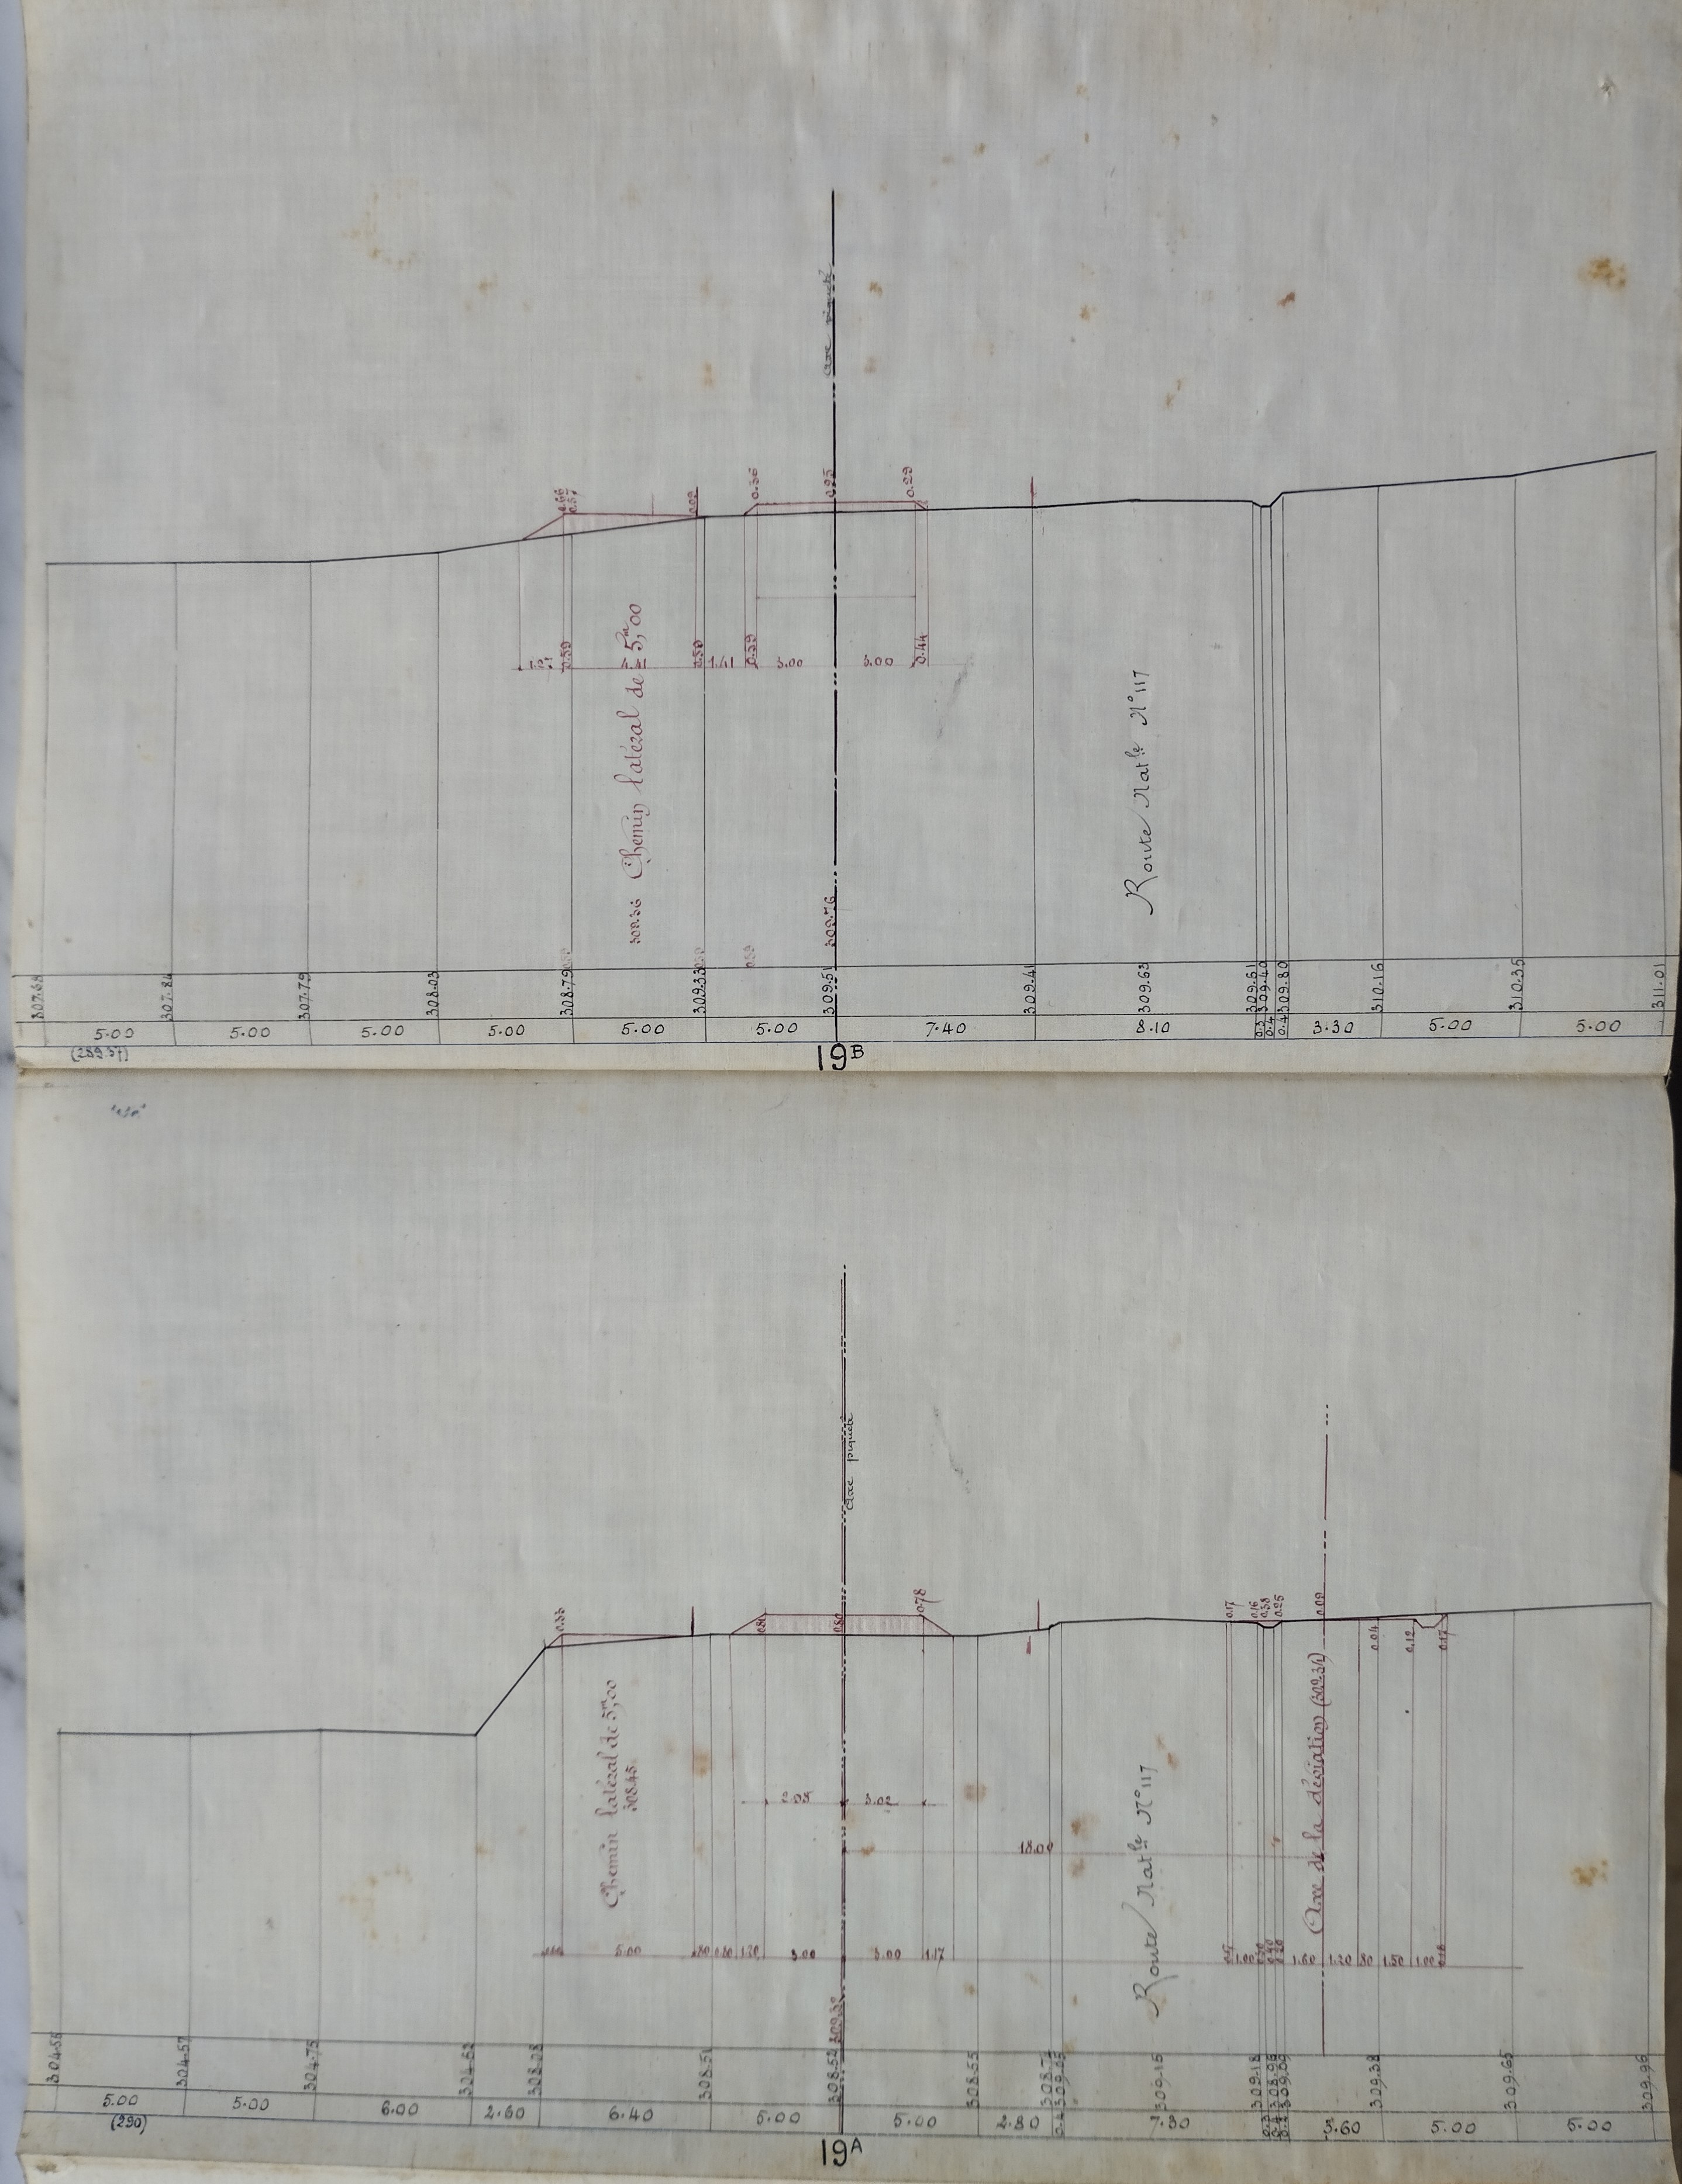 Axe piqué
0.66
0.57
0.09
0.36
0.25
0.29
0.59
0.50
1.61
0.59
3.00
3.00
0.44
Chemin latéral de 5,ᵐ00
Route Natˡᵉ N° 117
309.36
309.76
307.68
307.84
307.79
308.03
308.79
309.33
309.51
309.41
309.63
309.61
309.40
309.80
310.16
310.35
311.01
5.00
5.00
5.00
5.00
5.00
5.00
7.40
8.10
0.4
0.4
3.30
5.00
5.00
(289.57)
19ᴮ
Axe piqueté
0.53
0.81
0.80
0.78
0.17
0.16
0.38
0.25
0.09
0.04
0.12
0.17
Chemin latéral de 5,ᵐ00
308.45
Route Natˡᵉ N° 117
Axe de la déviation (309.31)
3.02
18.00
5.00
.80
0.80
1.20
3.00
3.00
1.17
1.00
1.60
1.20
.80
1.50
1.00
309.32
304.56
304.57
304.75
304.52
308.28
308.51
308.52
308.55
308.74
309.05
309.15
309.18
308.96
309.38
309.65
309.96
5.00
5.00
6.00
2.60
6.40
5.00
5.00
2.80
0.4
7.80
3.60
5.00
5.00
(290)
19ᴬ